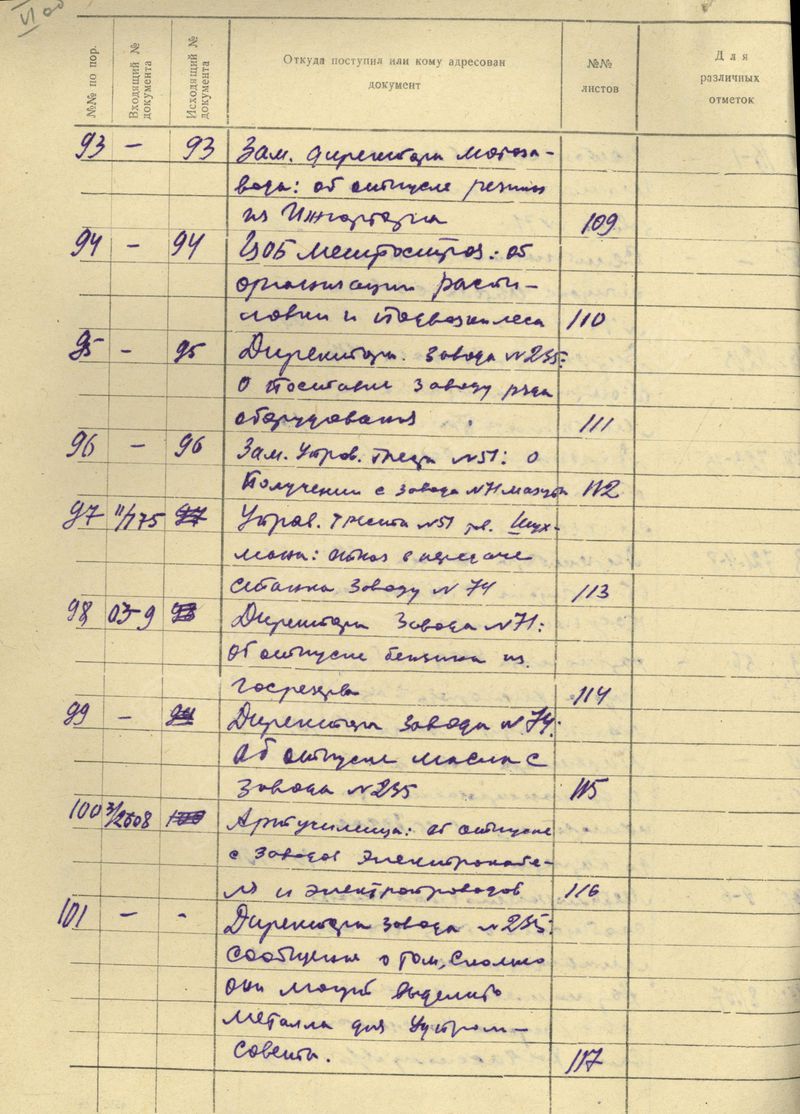 №№ по пор.
Входящий № документа
Исходящий № документа
Откуда поступил или кому адресован документ
№№ листов
Для различных отметок
93 – 93 Зам. директора мотоза-
вода: об отпуске резины
из Ижгорторга 109
94 – 94 Метростроя: об
организации распи-
ловки и подвозки леса 110
95 – 95 Директора завода №235:
о поставке заводу ряда
оборудования 111
96 – 96 Зам. Управ. треста №51: о
получении с завода №71 мазута 112
97 11/175 97 Управ. треста №51 тов. Шух-
мана: отказ в передаче
станка заводу №74 113
98 03-9 98 Директора завода №71:
об отпуске бензина из
госрезерва 114
99 – 99 Директора завода №74:
об отпуске масла с
завода №235 115
100 3/2608 100 Артучилища: об отпуске
с заводов электрокабе-
ля и электропроводов 116
101 – - Директора завода №235:
сообщение о том, сколько
они могут выделить
металла для
совета. 117